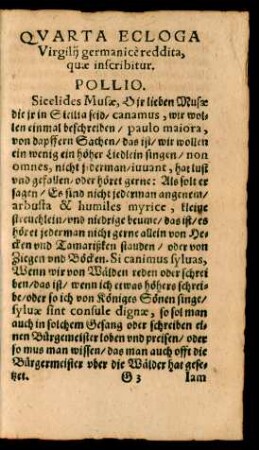 QVARTA ECLOGA
Virgilij germanicè reddita,
quæ inscribitur.
POLLIO.
Sicelides Musæ, O ir lieben Musæ
die jr in Sicilia seid/ canamus, wir wol⸗
len einmal beschreiben / paulo maiora,
von dapffern Sachen/ das ist/ wir wollen
ein wenig ein höher Liedlein singen/ non
omnes, nicht jederman/iuuant, hat lust
vnd gefallen/ oder höret gerne: Als solt er
sagen/ Es sind nicht jederman angenem/
arbusta & humiles myricæ, kleine
streuchlein/ vnd niedrige beume/ das ist/ es
höret jederman nicht gerne allein von He⸗
cken vnd Tamarißken stauden / oder von
Ziegen vnd Böcken. Si canimus syluas,
Wenn wir von Wälden reden oder schrei
ben/das ist/ wenn ich etwas höhers schrei⸗
be/oder so ich von Königes Sönen singe/
syluæ sint consule dignæ, so sol man
auch in solchem Gesang oder schreiben ei⸗
nen Bürgemeister loben vnd preisen/ oder
so mus man wissen/ das man auch offt die
Bürgermeister vber die Wälder hat gese⸗
tzet. G 3 Iam